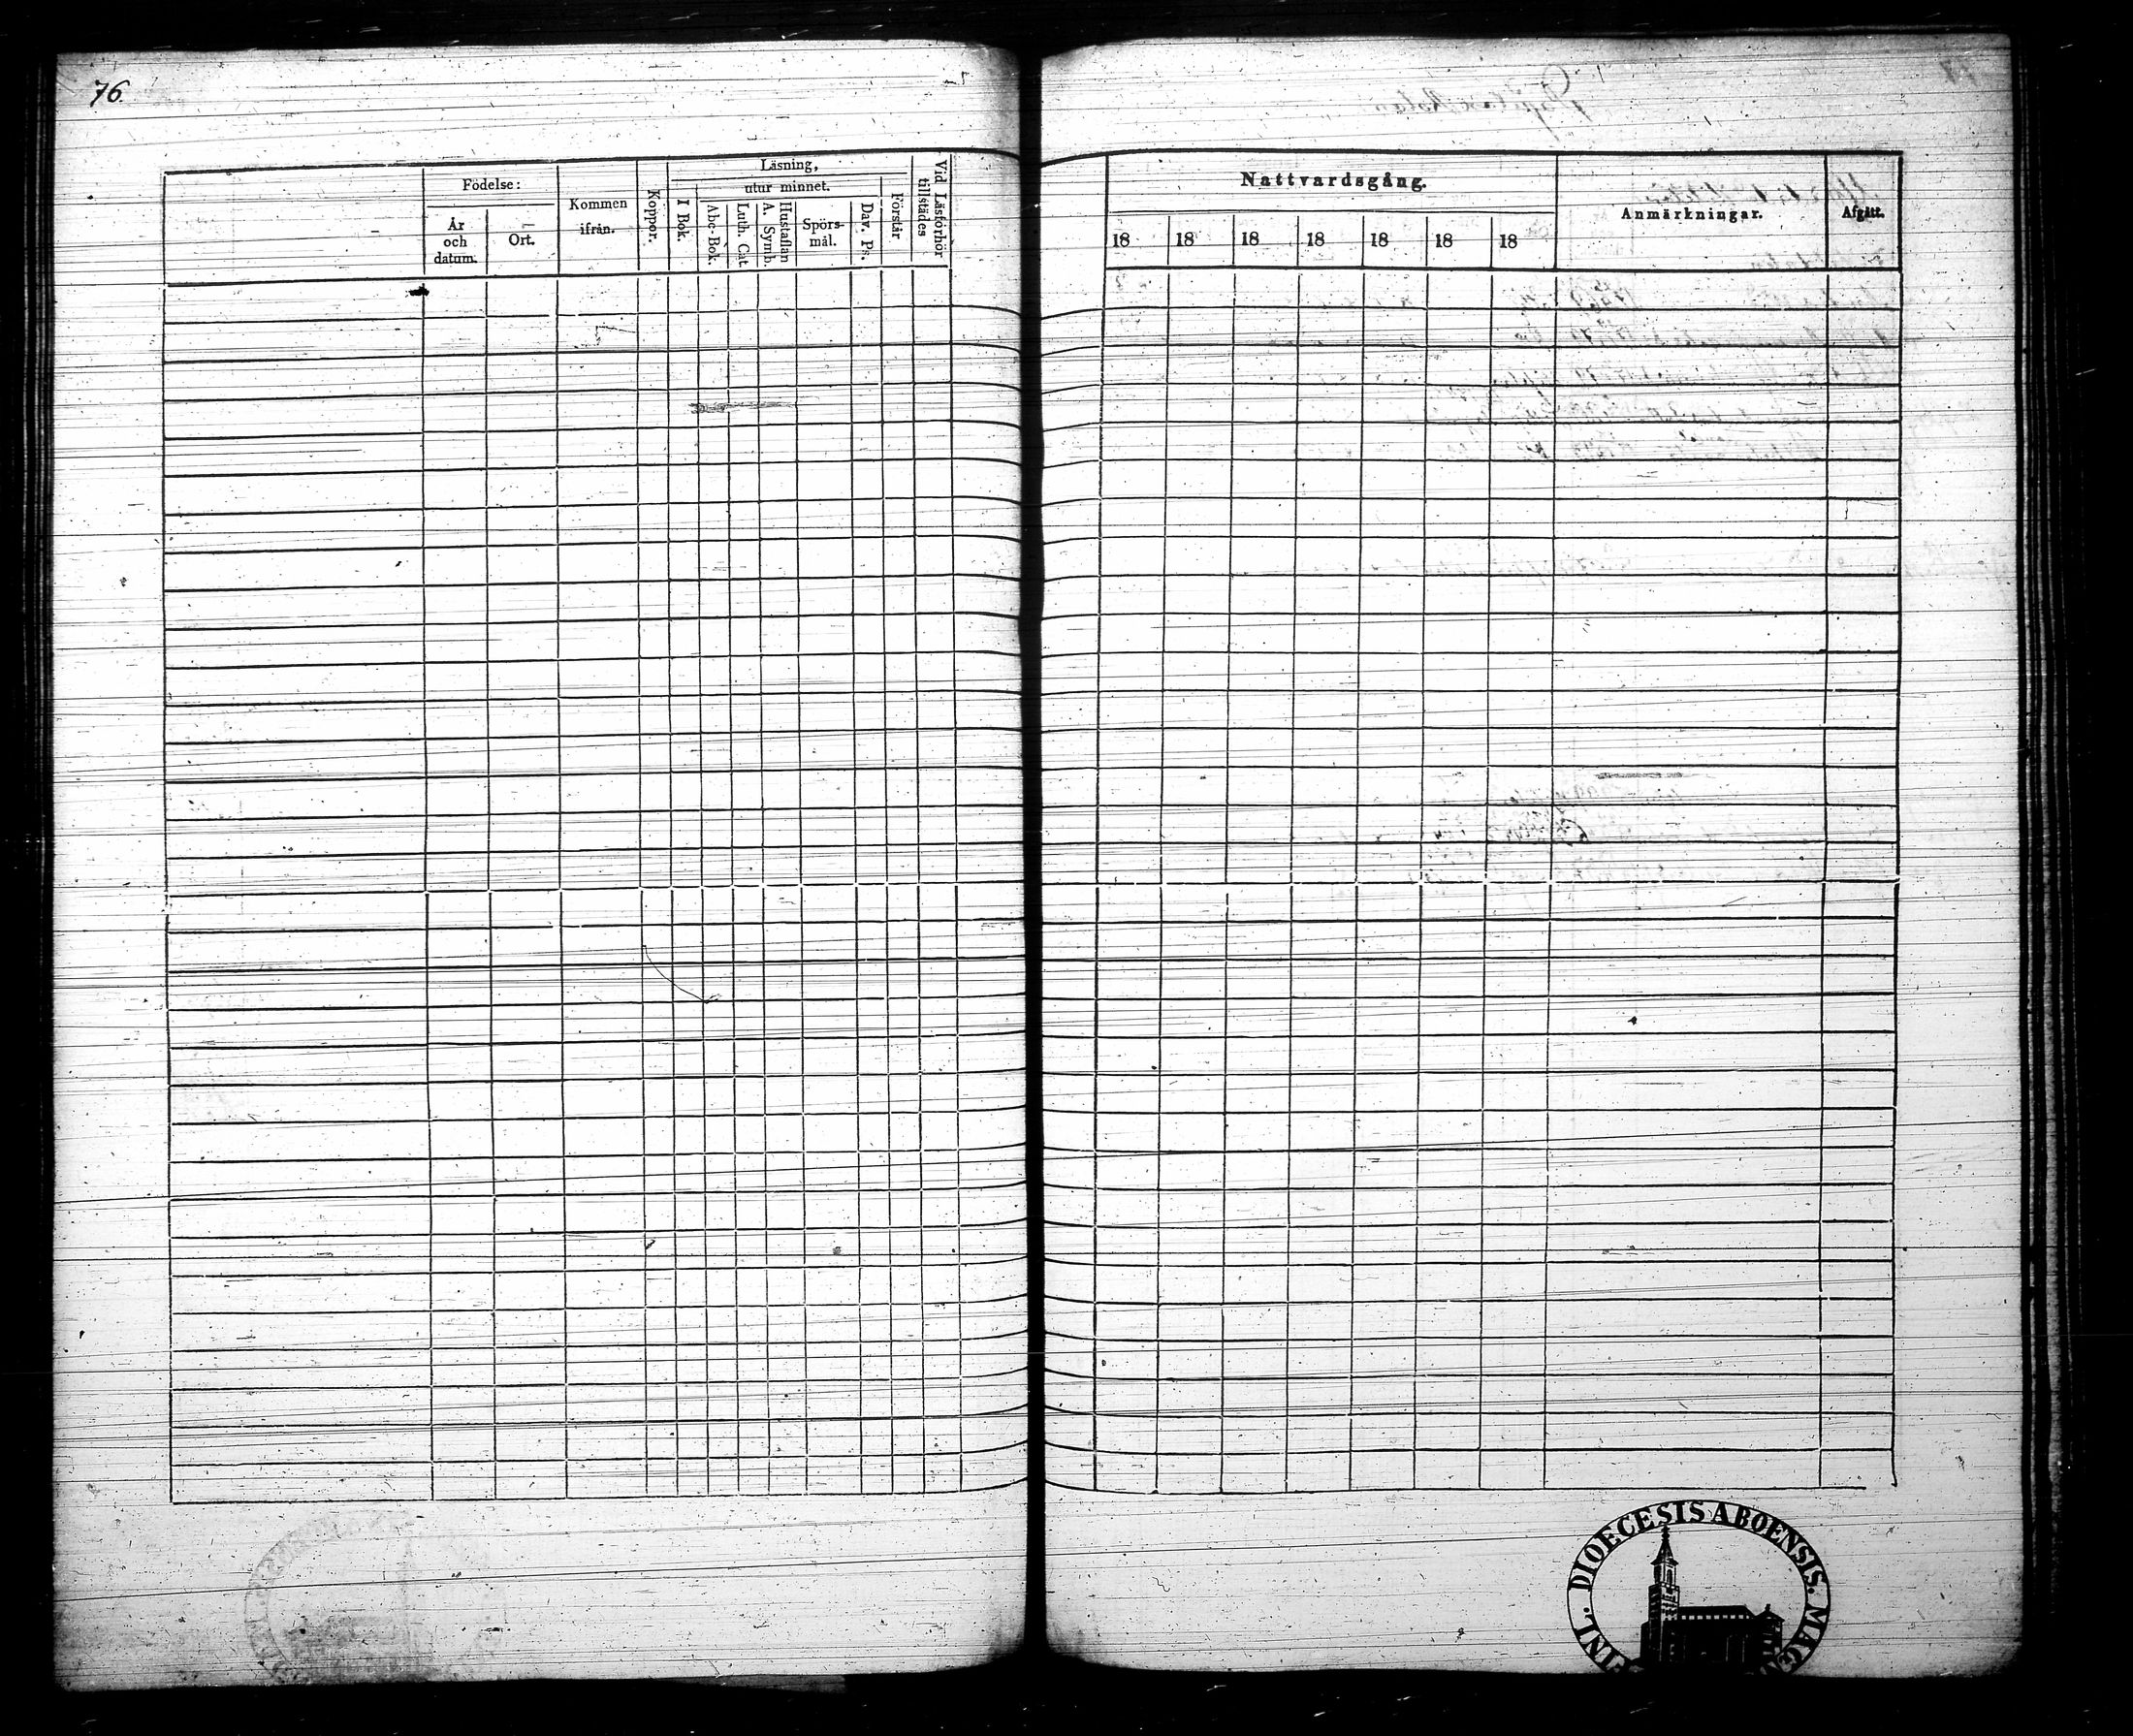 76.
Födelse:
År
och
datum.
Ort.
Kommen
ifrån.
Koppor.
Läsning,
utur minnet.
I Bok.
Abc-Bok.
Luth. Cat.
Hustaflan
A. Symb.
Spörs-
mål.
Dav. Ps.
Förstår
Vid Läsförhör
tillstädes
Nattvardsgång.
18 18 18 18 18 18 18
Anmärkningar.
Afgått.
DIOECESIS ABOENSIS. MAG